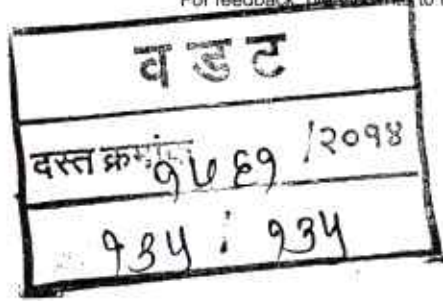 For feedback,
व ड ट
दस्त क्रमांक १७६१ /२०१४
१३५ : १३५